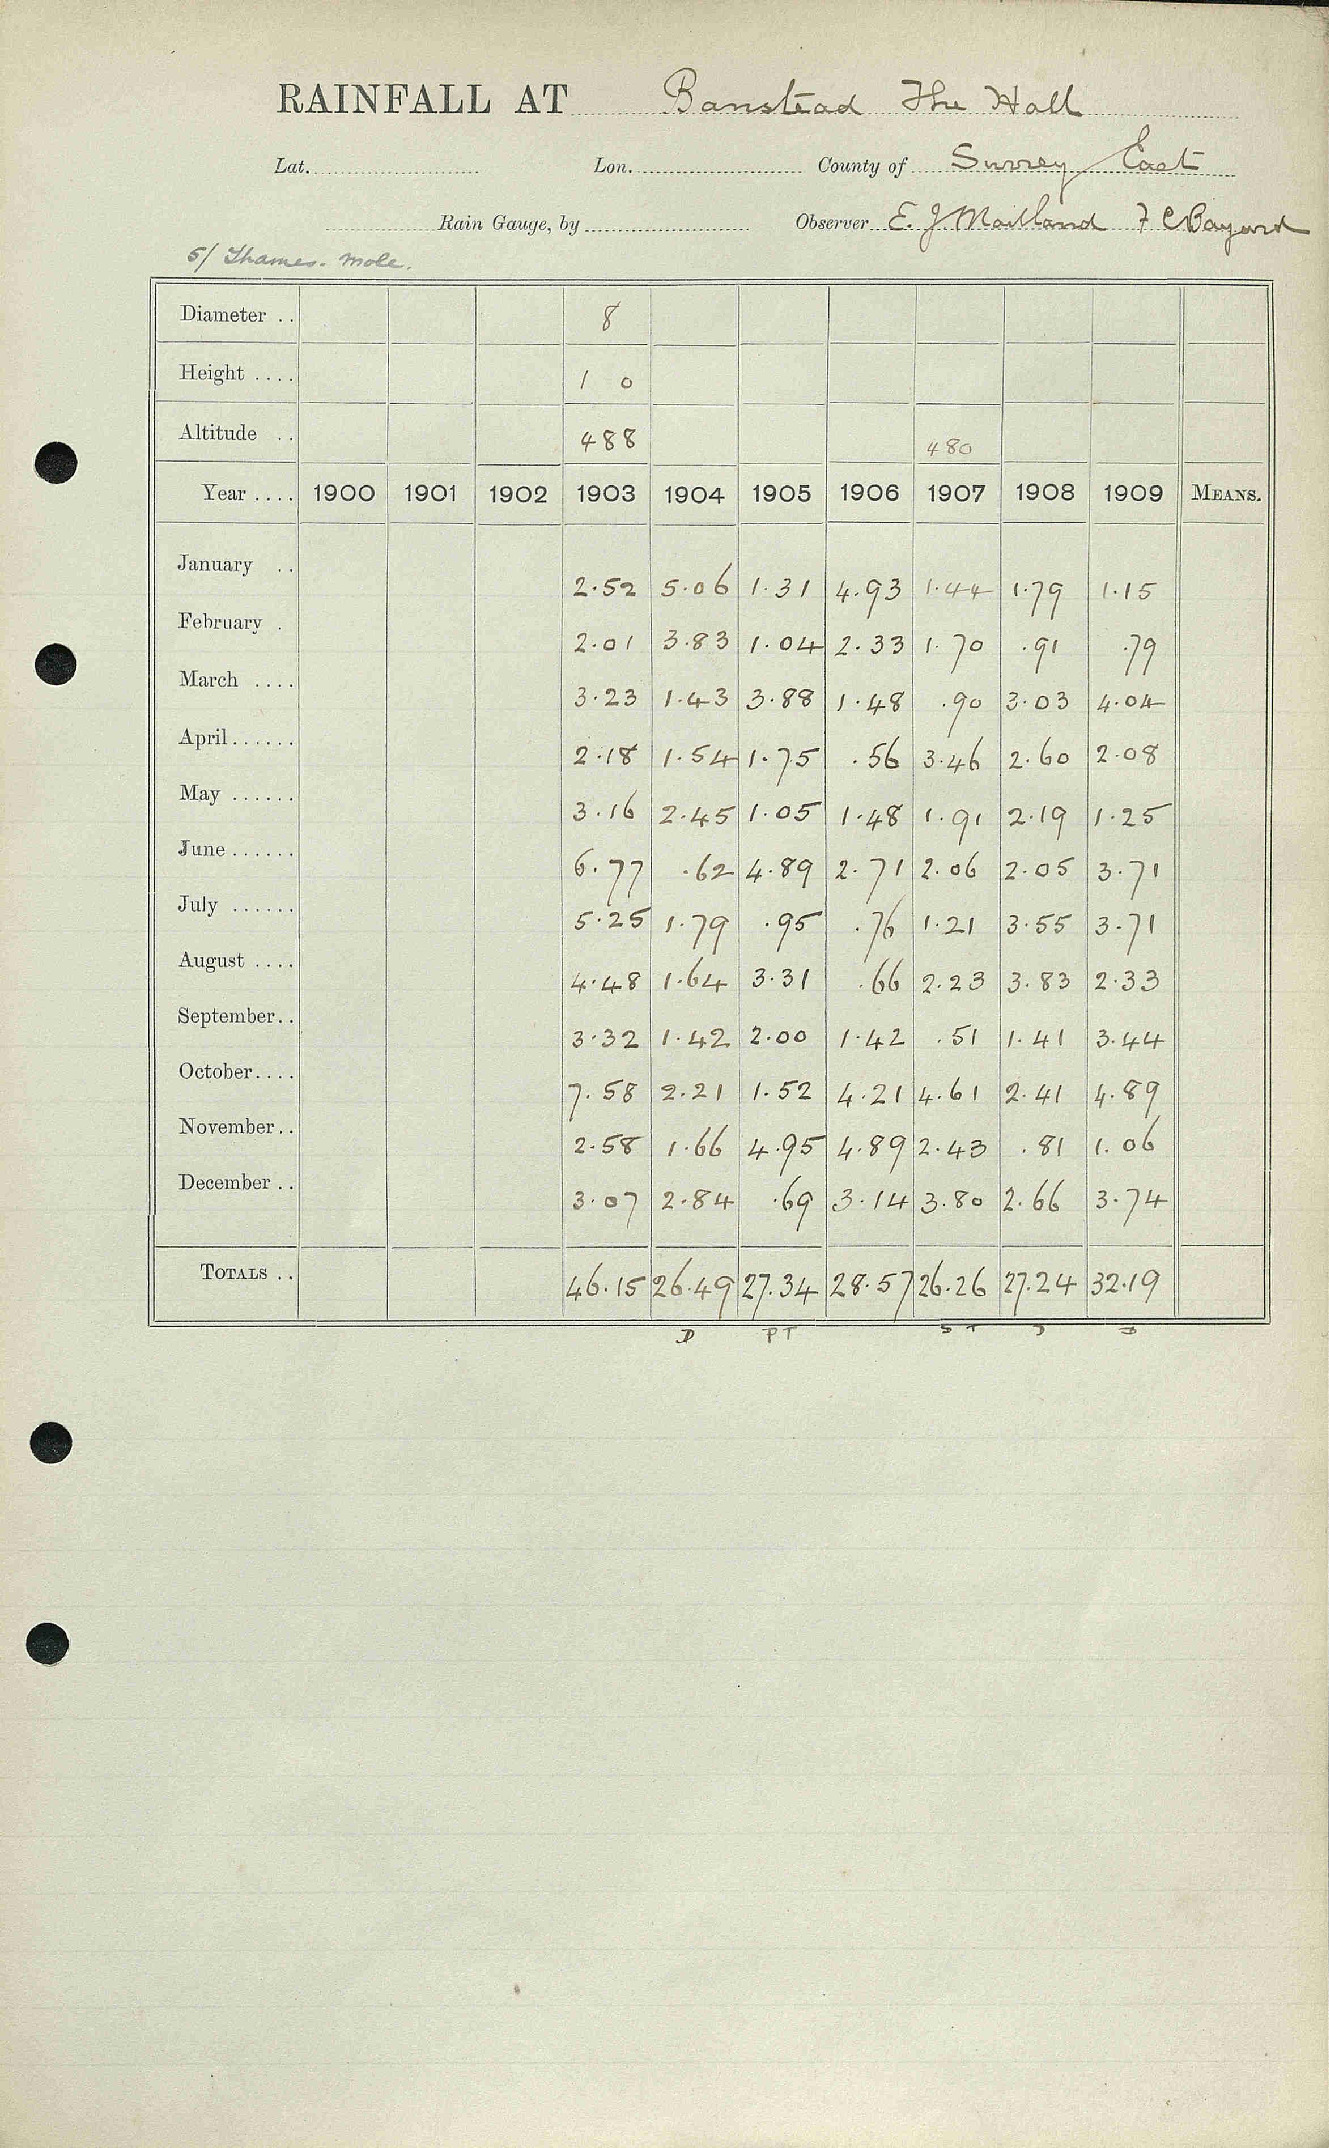 RAINFALL AT Banstead The Hall
Lat. Lon. County of Surrey East
Rain Gauge, by Observer E. J Maitland F C Bayard
5/ Thames. Mole.
Diameter .. 8
Height .... 1 0
Altitude .. 488 480
Year .... 1900 1901 1902 1903 1904 1905 1906 1907 1908 1909 MEANS.
January .. 2.52 5.06 1.31 4.93 1.44 1.79 1.15
February . 2.01 3.83 1.04 2.33 1.70 .91 .79
March .... 3.23 1.43 3.88 1.48 .90 3.03 4.04
April...... 2.18 1.54 1.75 .56 3.46 2.60 2.08
May ...... 3.16 2.45 1.05 1.48 1.91 2.19 1.25
June...... 6.77 .62 4.89 2.71 2.06 2.05 3.71
July ...... 5.25 1.79 .95 .76 1.21 3.55 3.71
August .... 4.48 1.64 3.31 .66 2.23 3.83 2.33
September.. 3.32 1.42 2.00 1.42 .51 1.41 3.44
October.... 7.58 2.21 1.52 4.21 4.61 2.41 4.89
November.. 2.58 1.66 4.95 4.89 2.43 .81 1.06
December .. 3.07 2.84 .69 3.14 3.80 2.66 3.74
TOTALS .. 46.15 26.49 27.34 28.57 26.26 27.24 32.19
D PT ST